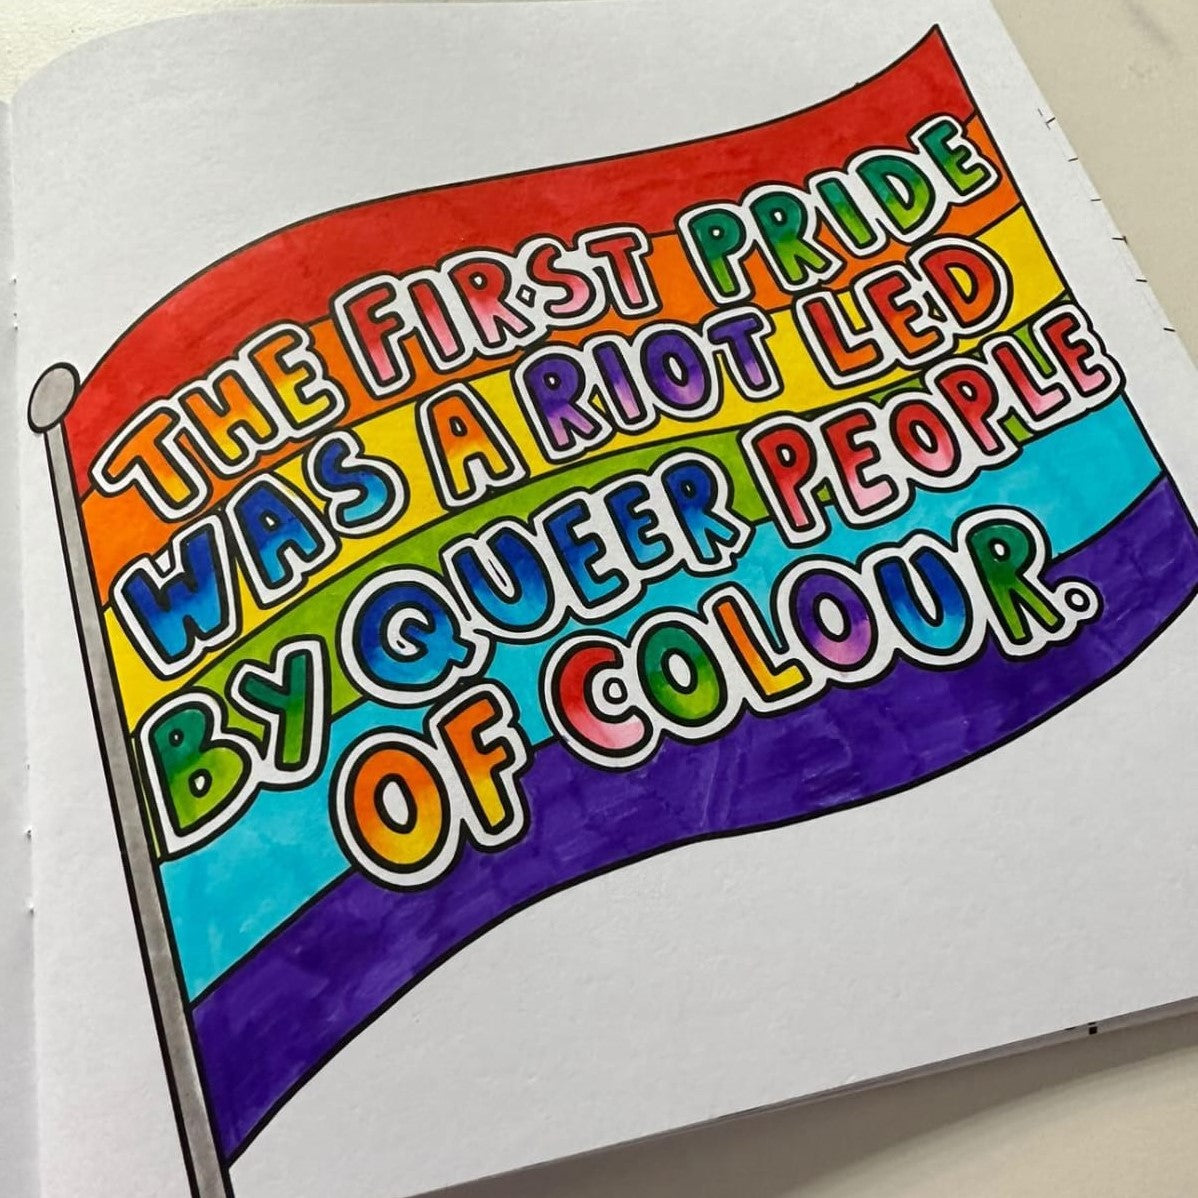 THE FIRST PRIDE
WAS A RIOT LED
BY QUEER PEOPLE
OF COLOUR.